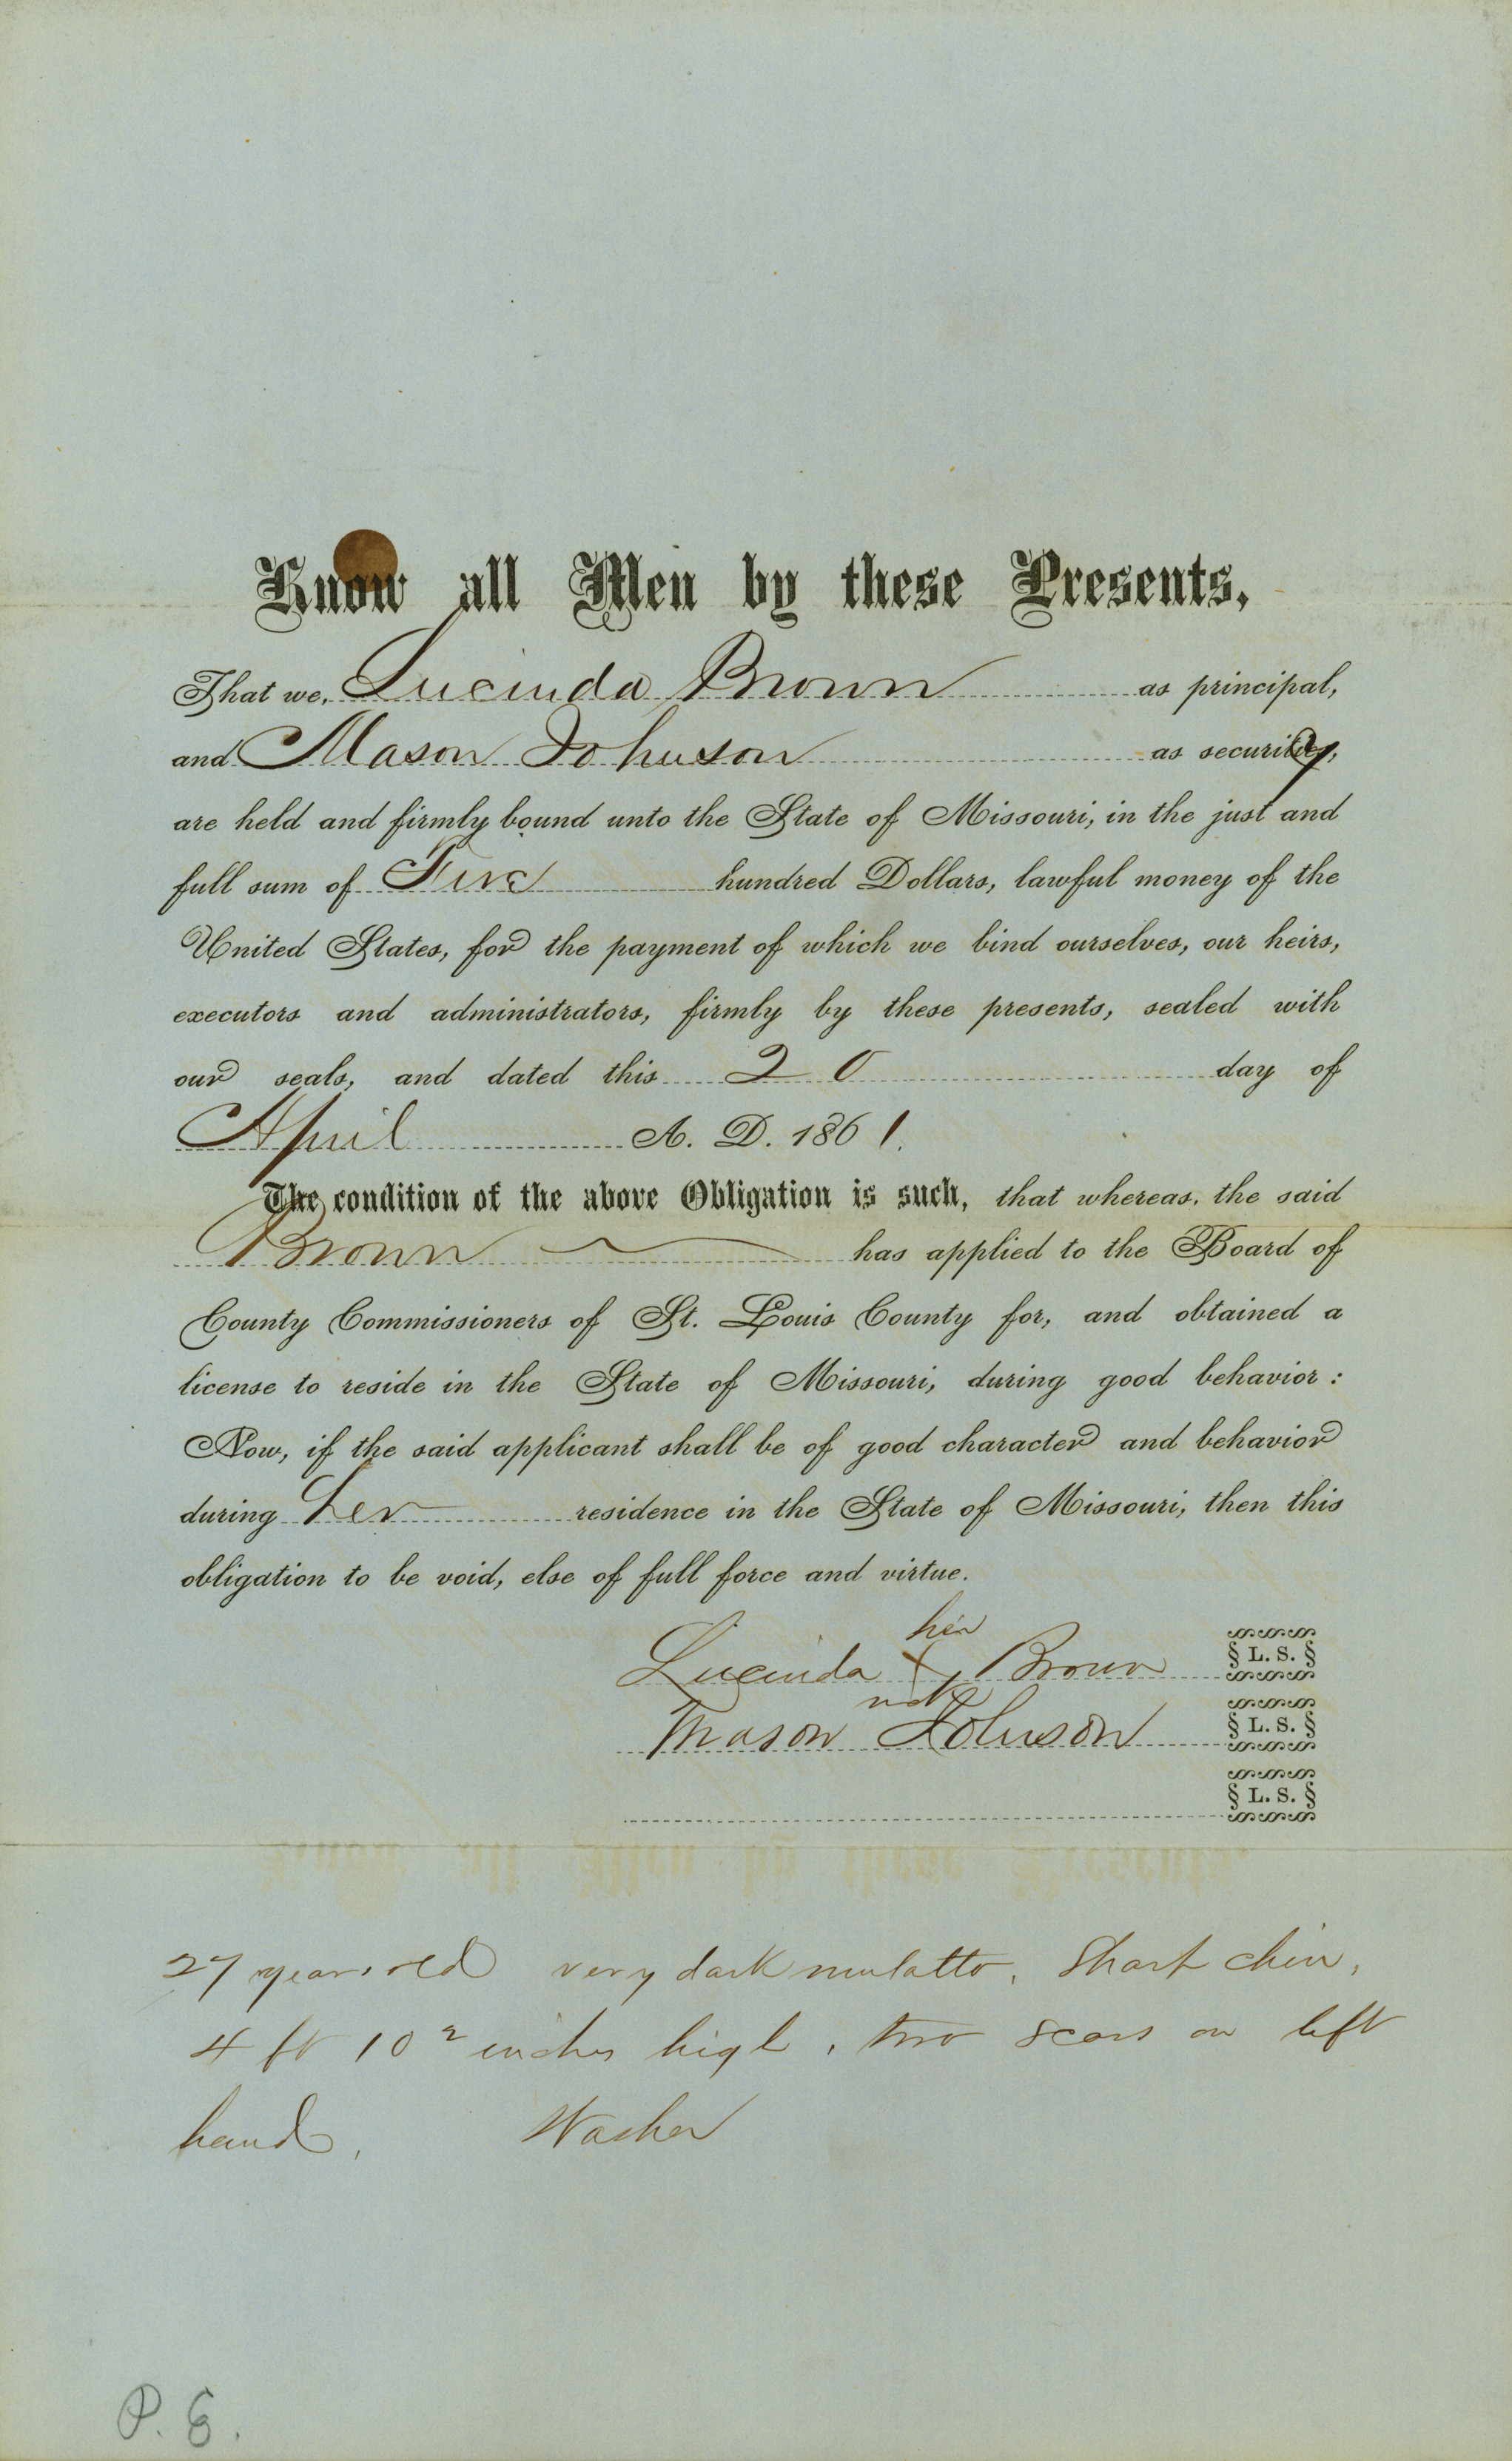 Know all Men by these Presents,
That we, Lucinda Brown as principal,
and Mason Johnson as security,
are held and firmly bound unto the State of Missouri, in the just and
full sum of Five hundred Dollars, lawful money of the
United States, for the payment of which we bind ourselves, our heirs,
executors and administrators, firmly by these presents, sealed with
our seals, and dated this 20 day of
April A. D. 1861.
The condition of the above Obligation is such, that whereas, the said
Brown has applied to the Board of
County Commissioners of St. Louis County for, and obtained a
license to reside in the State of Missouri, during good behavior :
Now, if the said applicant shall be of good character and behavior
during her residence in the State of Missouri, then this
obligation to be void, else of full force and virtue.
her
Lucinda X Brown § L. S. §
mk
Mason Johnson § L. S. §
§ L. S. §
27 years old very dark mulatto, Sharp chin,
4 ft 10 2 inches high, two scars on left
hand. Washer